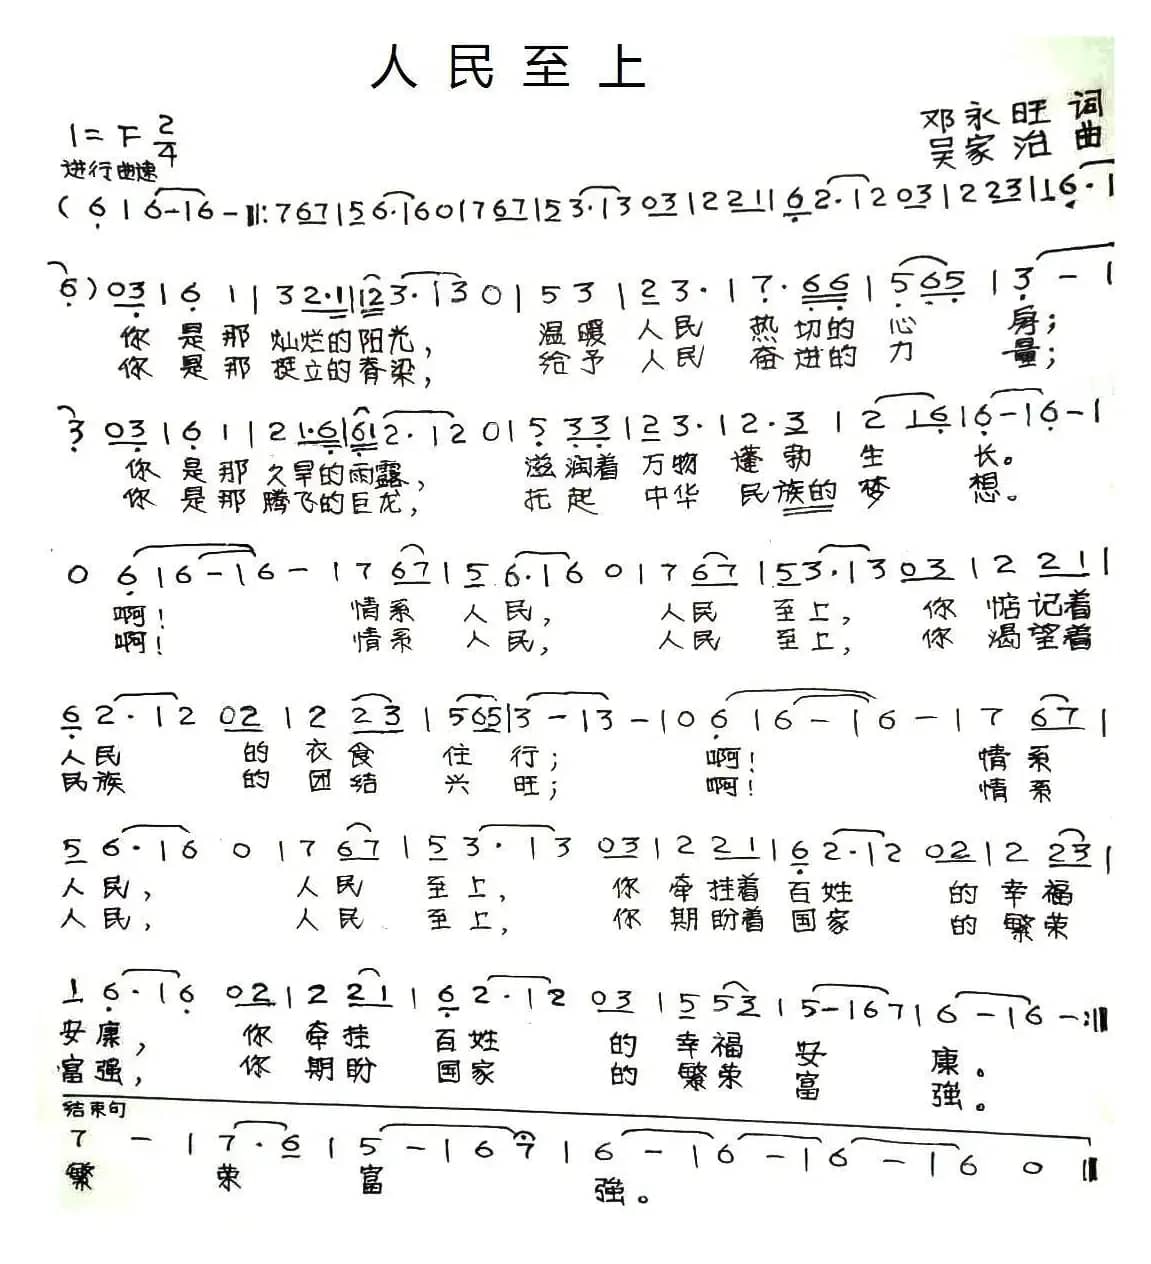 人民至上
邓永旺 词
1=F 2/4
吴家治 曲
进行曲速
( 6 1 6-16-‖: 7 67|5 6·16 0|7 67|5 3·13 03|2 21|6 2·12 03|2 23|1 6·1
6) 03|6 1|3 2·1|12 3·13 0|5 3|2 3·1 7·66|565|3-|
你是那灿烂的阳光, 温暖人民热切的心房;
你是那挺立的脊梁, 给予人民奋进的力量;
3 03|6 1|2 1·6|61 2·12 0|5 33|2 3·|2·3|2 16|6-|6-|
你是那久旱的雨露, 滋润着万物蓬勃生长。
你是那腾飞的巨龙, 托起中华民族的梦想。
0 6|6-|6-|7 67|5 6·|6 0|7 67|53·|3 03|2 21|
啊! 情系人民, 人民至上, 你惦记着
啊! 情系人民, 人民至上, 你渴望着
6 2·|2 02|2 23|565|3-|3-|0 6|6-|6-|7 67|
人民的衣食住行; 啊! 情系
民族的团结兴旺; 啊! 情系
5 6·|6 0|7 67|5 3·|3 03|2 21|6 2·|2 02|2 23|
人民, 人民至上, 你牵挂着百姓的幸福
人民, 人民至上, 你期盼着国家的繁荣
1 6·|6 02|2 21|6 2·|2 03|5 53|5-|67|6-|6-:‖
安康, 你牵挂百姓的幸福安康。
富强, 你期盼国家的繁荣富强。
结束句
7 -|7·6|5-|6 7|6-|6-|6-|6 0‖
繁荣富强。